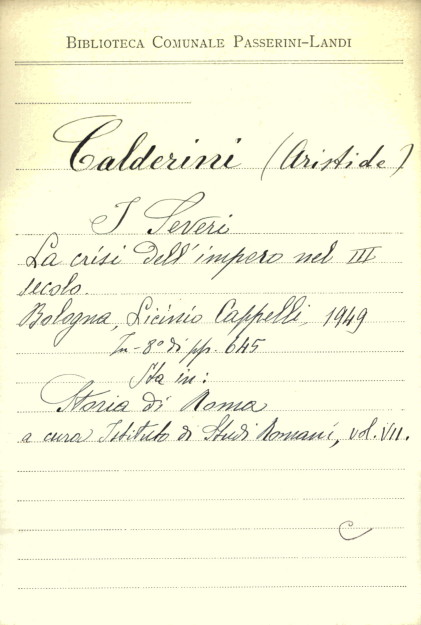 BIBLIOTECA COMUNALE PASSERINI-LANDI
Calderini (Aristide)
I Severi
La crisi dell'impero nel III
secolo.
Bologna, Licinio Cappelli, 1949
In-8° di pp. 645
Sta in:
Storia di Roma
a cura Istituto di Studi Romani, vol. VII.
C